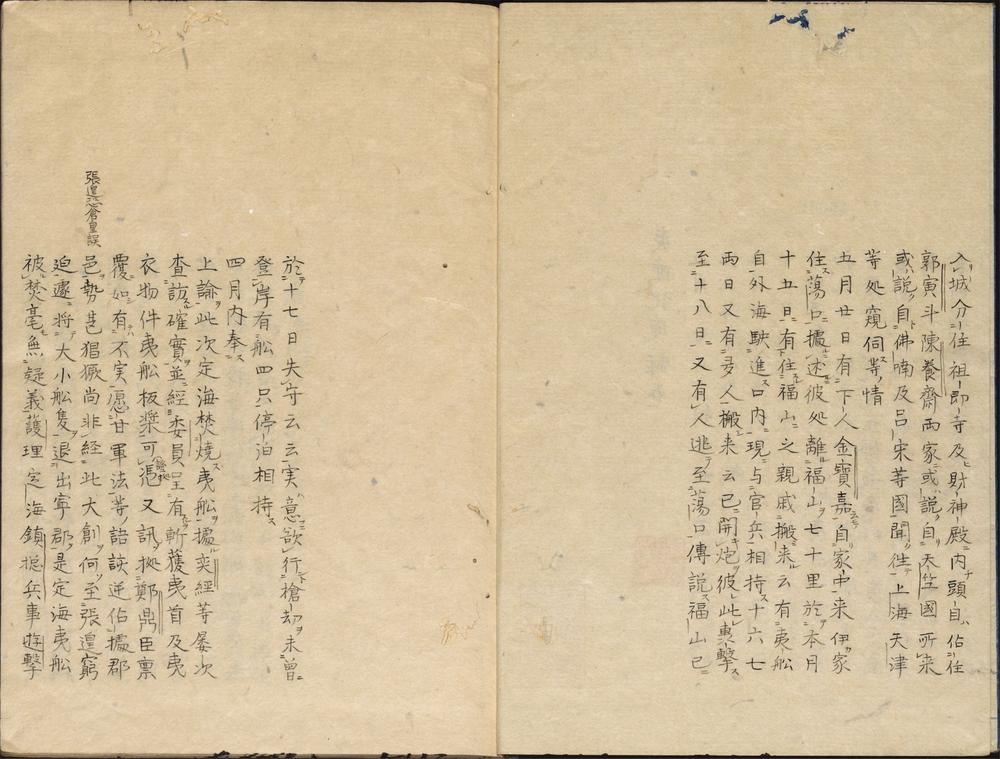 入城分住祖印寺及財神殿內頭自佔住
郭寅斗陳養齋兩家或說自天竺國所来
或說自佛喃及呂宋等國聞往上海天津
等処窺伺等情
五月廿日有下人金寶嘉自家中来伊家
住蕩口據述彼処離福山七十里於本月
十五日有住福山之親戚搬来云有夷船
自外海駛進口內現与官兵相持十六七
両日又有多人搬来云已開炮彼此轟擊
至十八日又有人逃至蕩口傳説福山已
於十七日失守云云実意欲行搶却未曽
登岸有船四只停泊相持
四月內奉
上諭此次定海焚燒夷船據奕經等屡次
査訪確實並經委員呈有斬獲夷首及夷
衣物件夷船板槳可憑又訊拠鄭鼎臣禀
覆如有不実愿甘軍法等語該逆佔據郡
邑勢甚猖獗尚非經此大創何至張遑窮
張遑恐倉皇誤
迫遽將大小船隻退出寧郡是定海夷船
被焚毫無疑義護理定海鎮摠兵事遊擊